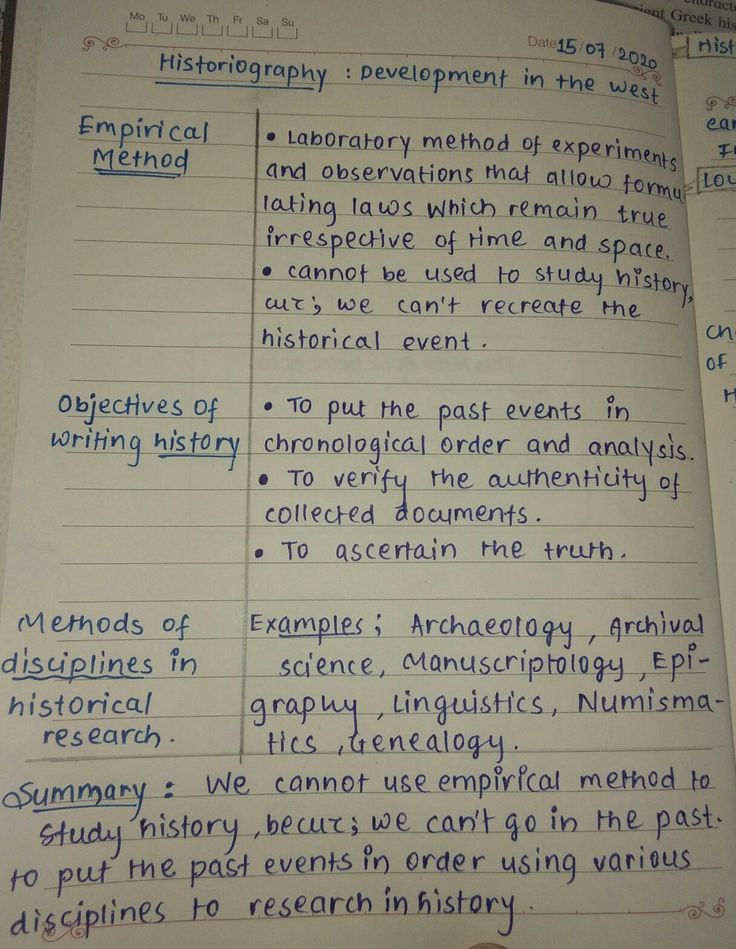 Mo Tu We Th Fr Sa Su
Date 15/07/2020
Historiography : Development in the west
Empirical
Method
• Laboratory method of experiments
and observations that allow formu
lating laws which remain true
irrespective of time and space.
• cannot be used to study history,
cuz; we can't recreate the
historical event.
Objectives of
writing history
• To put the past events in
chronological order and analysis.
• To verify the authenticity of
collected documents.
• To ascertain the truth.
Methods of
disciplines in
historical
research.
Examples; Archaeology, Archival
science, Manuscriptology, Epi-
graphy, Linguistics, Numisma-
tics, Genealogy.
Summary: We cannot use empirical method to
study history, becuz; we can't go in the past.
to put the past events in order using various
disciplines to research in history.
Greek his
Hist
ear
LOU
of